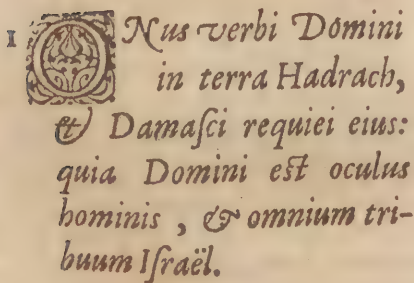 1 ONus verbi Domini
in terra Hadrach,
& Damaſci requiei eius:
quia Domini eſt oculus
hominis, & omnium tri-
buum Iſraël.